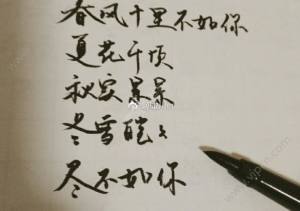 春风十里不如你
夏花千顷
秋实累累
冬雪皑皑
尽不如你